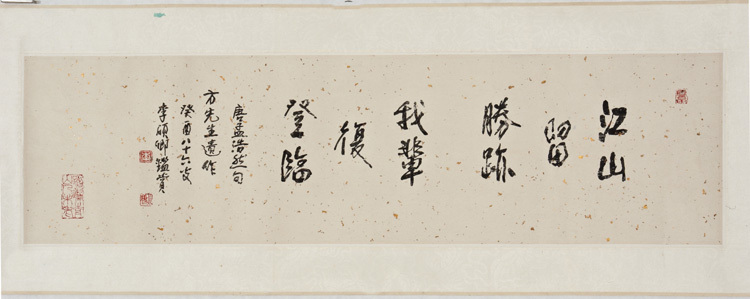 江山
留
勝跡
我輩
復
登臨
唐孟浩然句
方先生遺作
癸酉八十六叟
李碩卿鑑賞